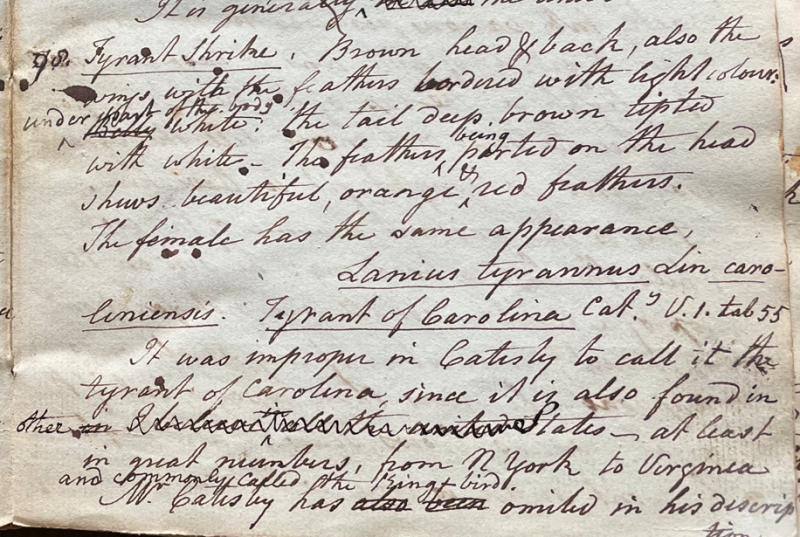 It is generally
98. Tyrant Shrike. Brown head & back, also the
wings with the feathers bordered with light colour.
under part of the body
belly white. the tail deep brown tipted
being
with white – The feathers parted on the head
shews beautiful, orange & red feathers.
The female has the same appearance,
Lanius tyrannus Lin caro-
liniensis. Tyrant of Carolina Cat.y V.1. tab 55
It was improper in Catesby to call it the
tyrant of Carolina, since it is also found in
other in all the united States – at least
in great numbers, from N York to Virginia
and commonly called the King bird.
Mr Catesby has also been omited in his descrip
tion